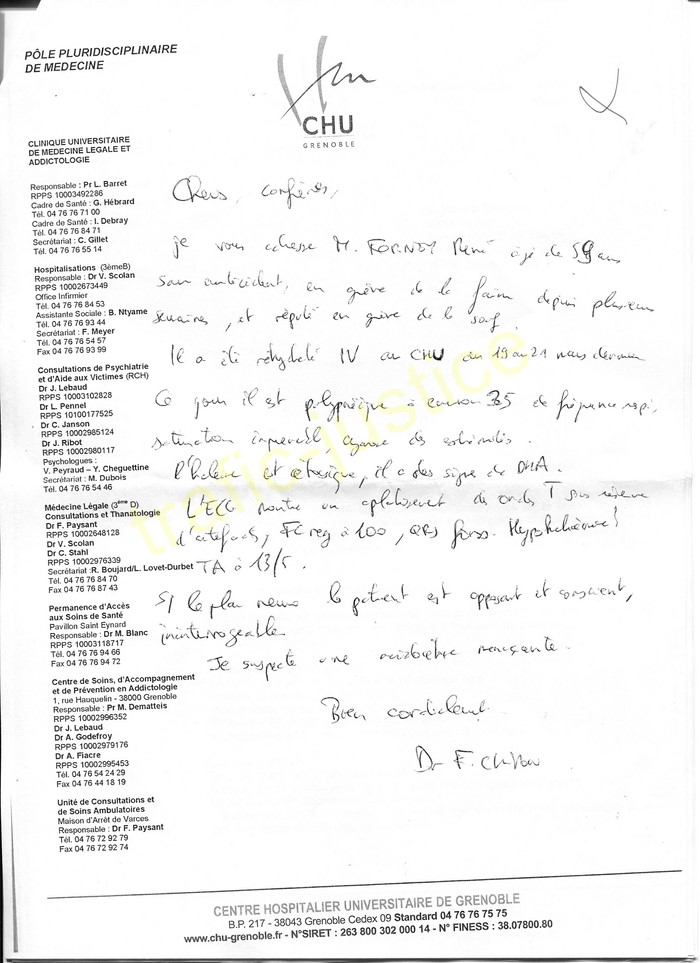 PÔLE PLURIDISCIPLINAIRE
DE MEDECINE
CHU
GRENOBLE
CLINIQUE UNIVERSITAIRE
DE MEDECINE LEGALE ET
ADDICTOLOGIE
Responsable : Pr L. Barret
RPPS 10003492286
Cadre de Santé : G. Hébrard
Tél. 04 76 76 71 00
Cadre de Santé : I. Debray
Tél. 04 76 76 84 71
Secrétariat : C. Gillet
Tél. 04 76 76 55 14
Hospitalisations (3èmeB)
Responsable : Dr V. Scolan
RPPS 10002673449
Office Infirmier
Tél. 04 76 76 84 53
Assistante Sociale : B. Ntyame
Tél. 04 76 76 93 44
Secrétariat : F. Meyer
Tél. 04 76 76 54 57
Fax 04 76 76 93 99
Consultations de Psychiatrie
et d'Aide aux Victimes (RCH)
Dr J. Lebaud
RPPS 10003102828
Dr L. Pennel
RPPS 10100177525
Dr C. Janson
RPPS 10002985124
Dr J. Ribot
RPPS 10002980117
Psychologues :
V. Peyraud – Y. Cheguettine
Secrétariat : M. Dubois
Tél. 04 76 76 54 46
Médecine Légale (3ème D)
Consultations et Thanatologie
Dr F. Paysant
RPPS 10002648128
Dr V. Scolan
Dr C. Stahl
RPPS 10002976339
Secrétariat :R. Boujard/L. Lovet-Durbet
Tél. 04 76 76 84 70
Fax 04 76 76 87 43
Permanence d'Accès
aux Soins de Santé
Pavillon Saint Eynard
Responsable : Dr M. Blanc
RPPS 10003118717
Tél. 04 76 76 94 66
Fax 04 76 76 94 72
Centre de Soins, d'Accompagnement
et de Prévention en Addictologie
1, rue Hauquelin - 38000 Grenoble
Responsable : Pr M. Dematteis
RPPS 10002996352
Dr J. Lebaud
Dr A. Godefroy
RPPS 10002979176
Dr A. Fiacre
RPPS 10002995453
Tél. 04 76 54 24 29
Fax 04 76 44 18 19
Unité de Consultations et
de Soins Ambulatoires
Maison d'Arrêt de Varces
Responsable : Dr F. Paysant
Tél. 04 76 72 92 79
Fax 04 76 72 92 74
Chers confrères,
je vous adresse M. FORNEY René âgé de 59 ans
sans antécédent, en grève de la faim depuis plusieurs
semaines, et réputé en grève de la soif.
Il a été réhydraté IV au CHU du 19 au 21 mars dernier
Ce jour il est polypnéique à environ 35 de fréquence respi,
saturation imprenable, cyanose des extrémités.
l'haleine est cétosique, il a des signes de DHA.
L'ECG montre un aplatissement des ondes T sous réserve
d'artefacts, FC reg à 100, QRS Hypokaliémie !
TA à 13/5.
S/ le plan neuro le patient est opposant et conscient,
ininterrogeable
Je suspecte une acidocétose menaçante.
Bien cordialement
Dr F.
trafic-justice
CENTRE HOSPITALIER UNIVERSITAIRE DE GRENOBLE
B.P. 217 - 38043 Grenoble Cedex 09 Standard 04 76 76 75 75
www.chu-grenoble.fr - N°SIRET : 263 800 302 000 14 - N° FINESS : 38.07800.80